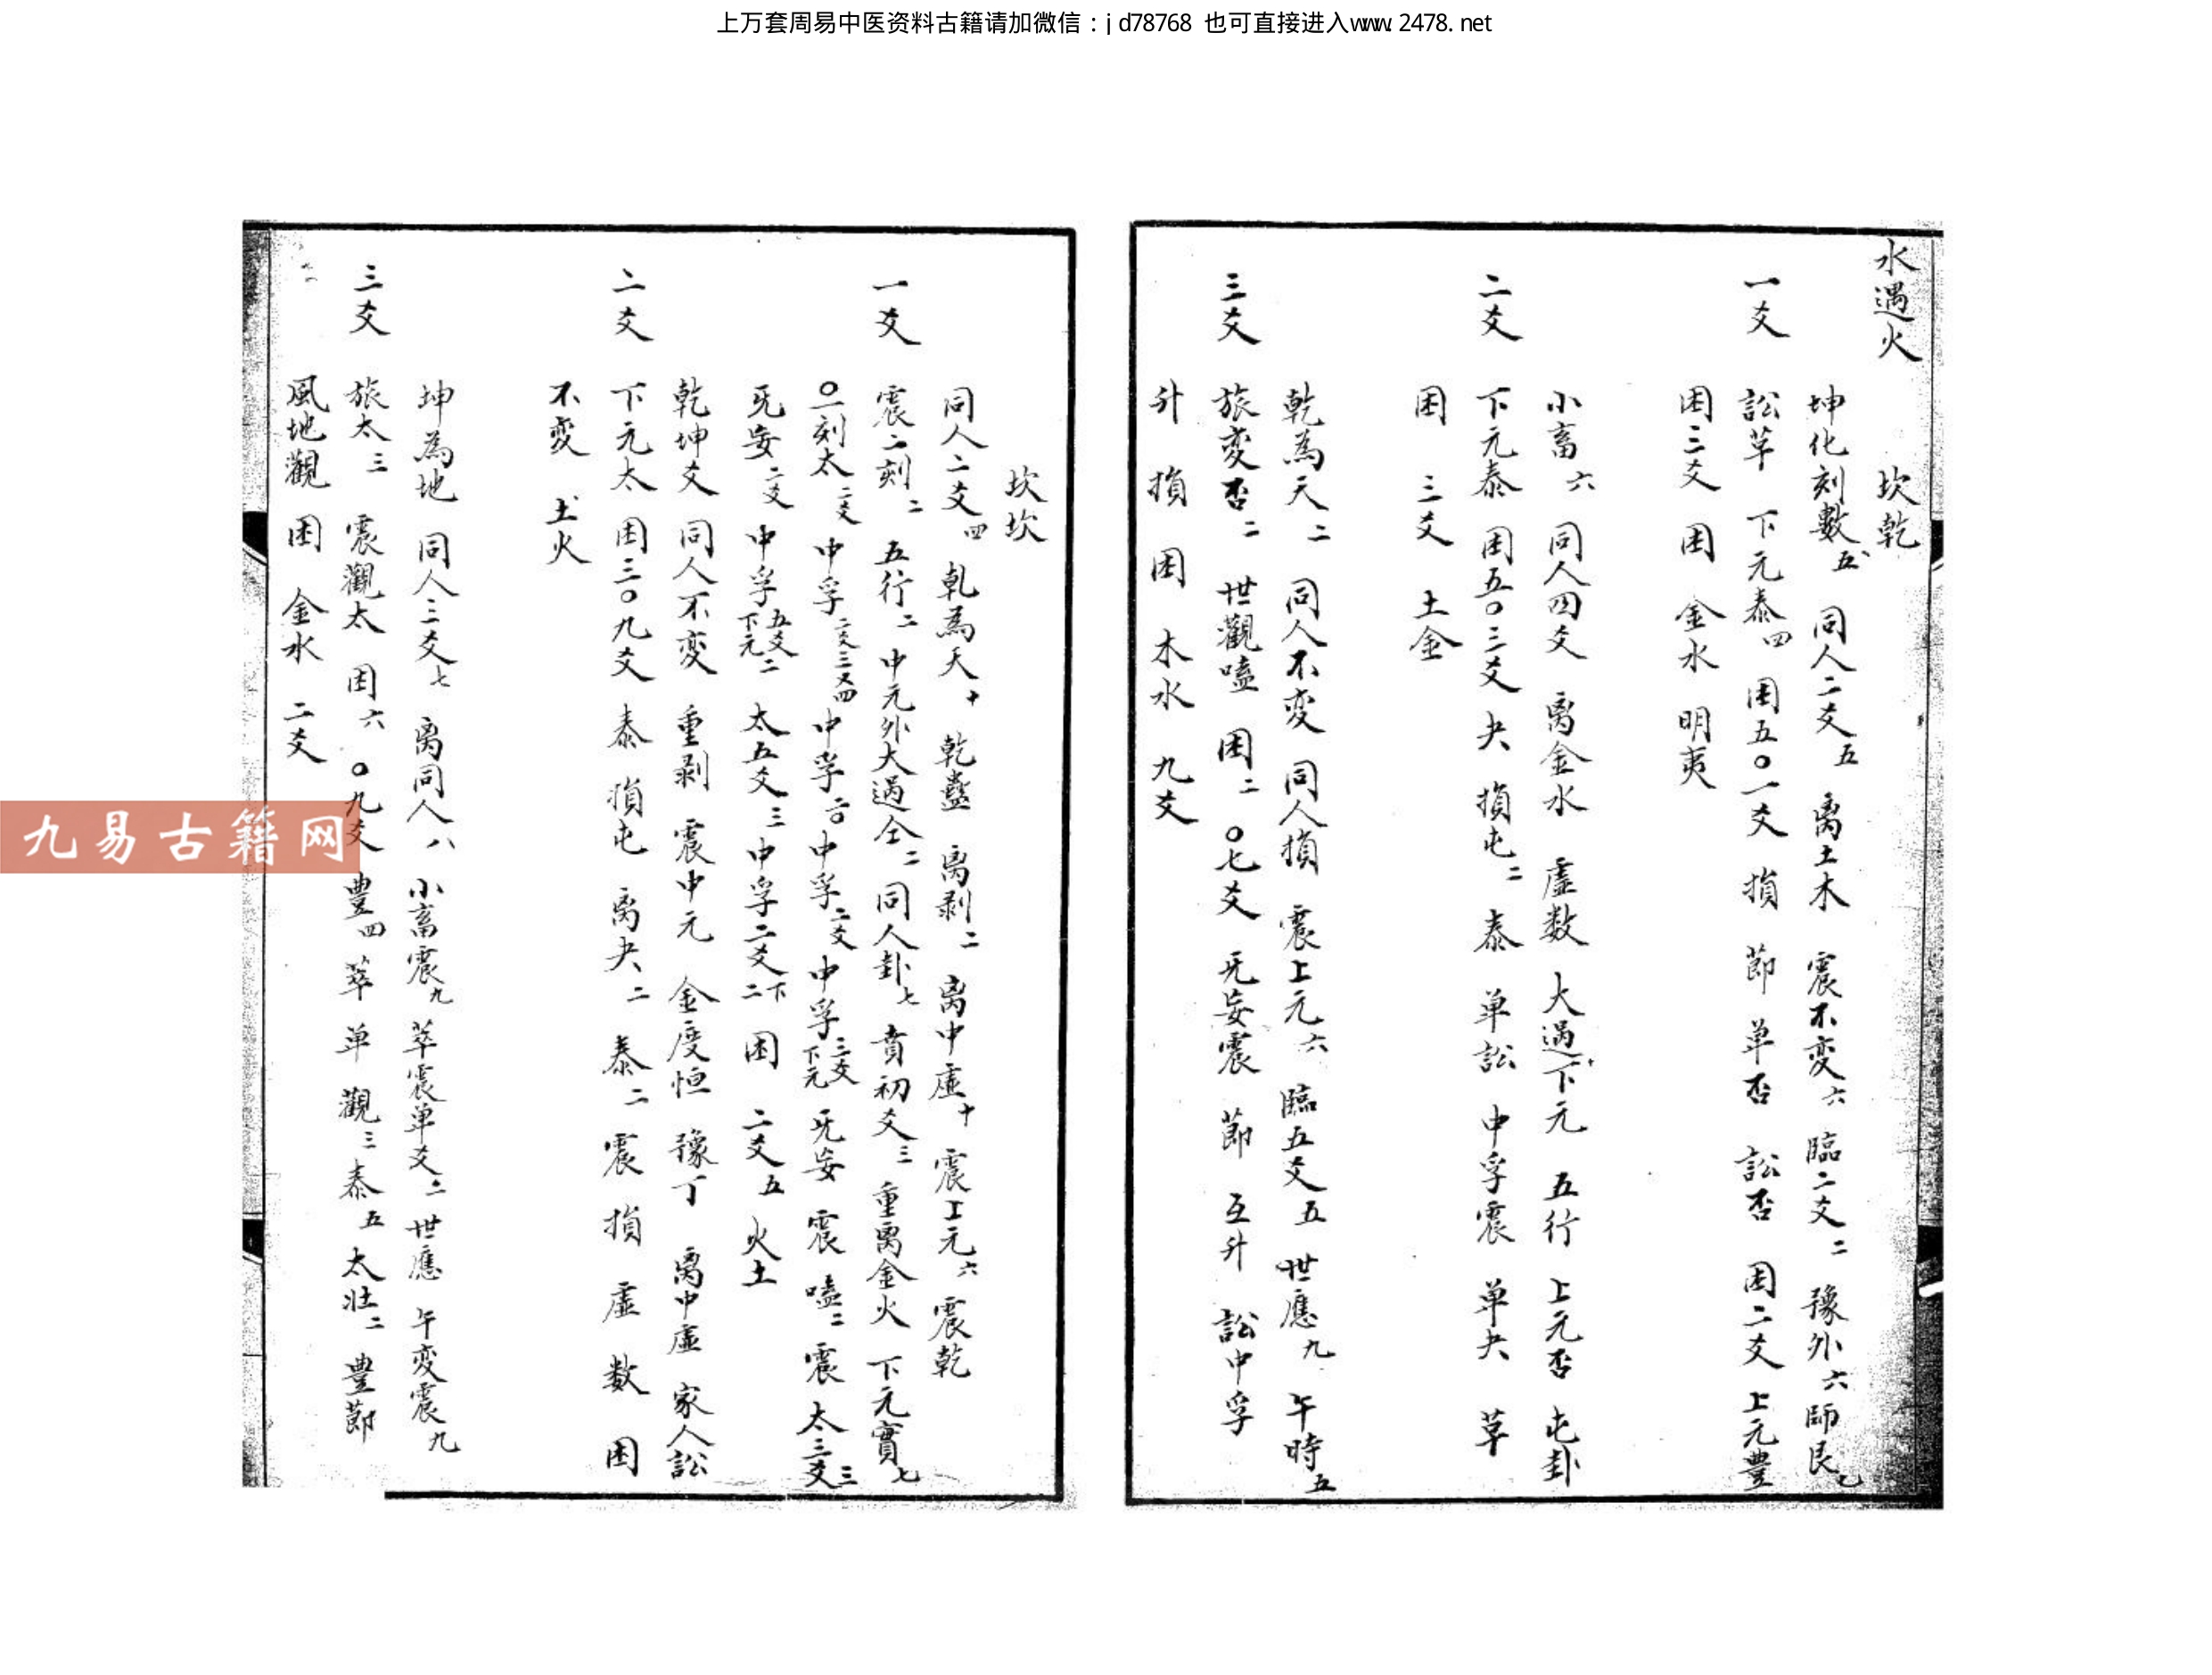 上万套周易中医资料古籍请加微信：jd78768 也可直接进入www.2478.net
水遇火
坎乾
坤化刻數五 同人二爻五 离土木 震不变六 臨二爻二 豫外六 師艮七
一爻 訟革 下元泰四 困五〇一爻 損 節 单否 訟否 困二爻 上元豐
困三爻 困 金水 明夷
小畜六 同人四爻 离金水 虛数 大過十下元 五行 上元否 屯卦
二爻 下元泰 困五〇三爻 夬 損屯二 泰 单訟 中孚震 单夬 革
困 三爻 土金
乾為天二 同人不变 同人損 震上元六 臨五爻五 世應九 午時五
三爻 旅变否二 世觀嗑 困二 〇七爻 无妄震 節 互升 訟中孚
升 損 困 木水 九爻
坎坎
同人二爻四 乹為天十 乾蠱 离剥二 离中虛十 震上元六 震乾
一爻 震二刻二 五行二 中元外大過全二 同人卦七 賁初爻三 重离金火 下元實七
〇一刻太二爻 中孚二爻三又四 中孚 中孚二爻 中孚三爻下元 无妄 震 嗑二 震太三爻三
无妄二爻 中孚五爻二下元 太五爻三 中孚二爻下二 困 二爻五 火土
乾坤爻 同人不变 重剥 震中元 金度恒 豫丁 离中虛 家人訟
二爻 下元太 困三〇九爻 泰 損屯 离夬二 泰二 震 損 虛 数 困
不变 土火
坤為地 同人三爻七 离同人八 小畜震九 萃震单爻二 世應 午变震九
三爻 旅太三 震觀太 困六 〇九爻 豊四 萃 单 觀三 泰五 太壮二 豊節
風地觀 困 金水 二爻
九易古籍网